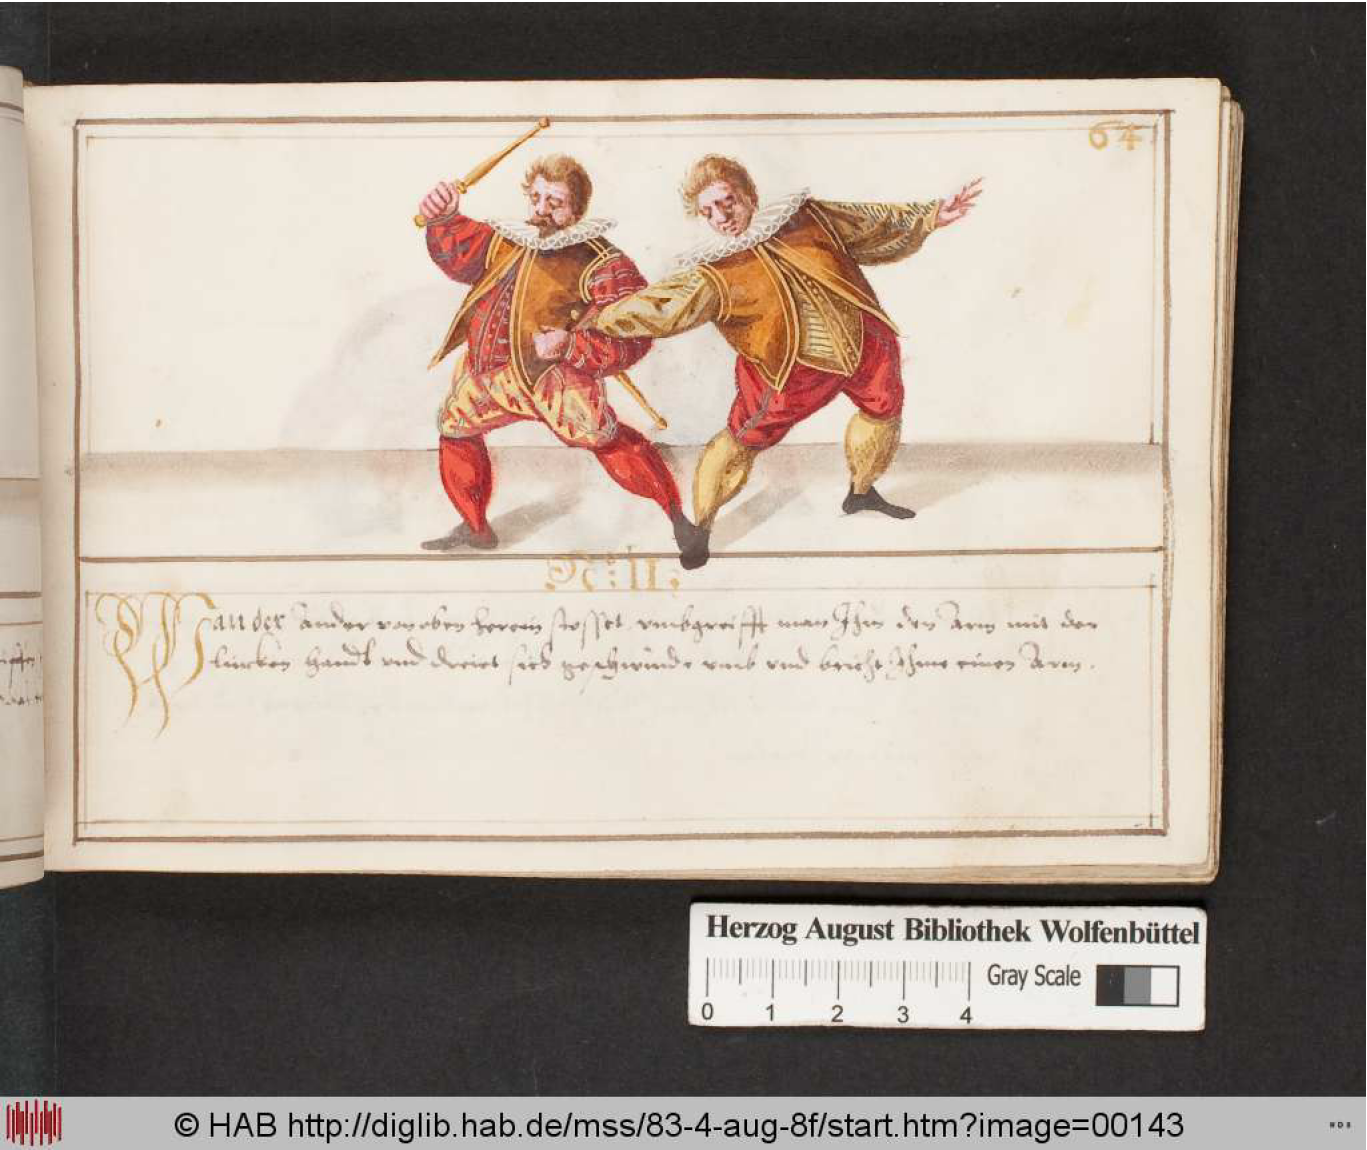 64
N: 11:
Wan der ander von oben herein stosset, vmbgreifft man Ihm den Arm mit der
lincken Handt vnd dreiet sich geschwinde vmb vnd bricht Ihme einen Arm.
Herzog August Bibliothek Wolfenbüttel
Gray Scale
0 1 2 3 4
© HAB http://diglib.hab.de/mss/83-4-aug-8f/start.htm?image=00143